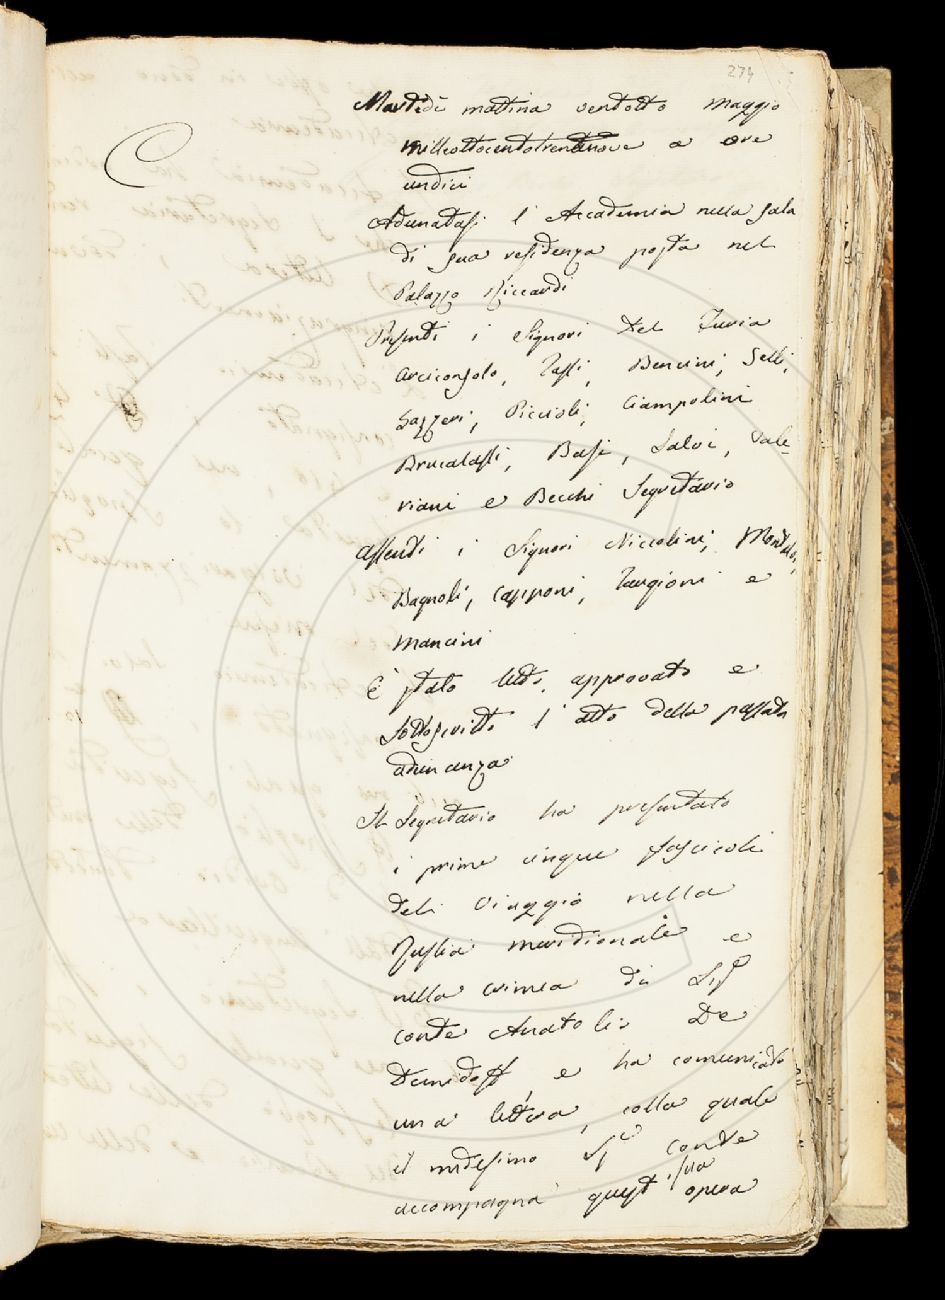 274
Martedì mattina ventotto Maggio
milleottocentotrentanove a ore
undici
Adunatasi l'Accademia nella sala
di sua residenza posta nel
Palazzo Riccardi
Presenti i Signori Del Furia
Arciconsolo, Tassi, Bencini, Gelli,
Gazzeri, Piccioli, Ciampolini
Brucalassi, Basi, Salvi, Vale-
riani e Becchi Segretario
Assenti i Signori Niccolini,
Bagnoli, Capponi, Targioni e
Mancini
È stato letto, approvato e
sottoscritto l'atto della passata
adunanza
Il Segretario ha presentato
i primi cinque fascicoli
del viaggio nella
Russia meridionale e
nella Crimea di
Conte Anatolio De
Demidoff, e ha comunicato
una lettera, colla quale
il medesimo Conte
accompagna quest'opera
sua